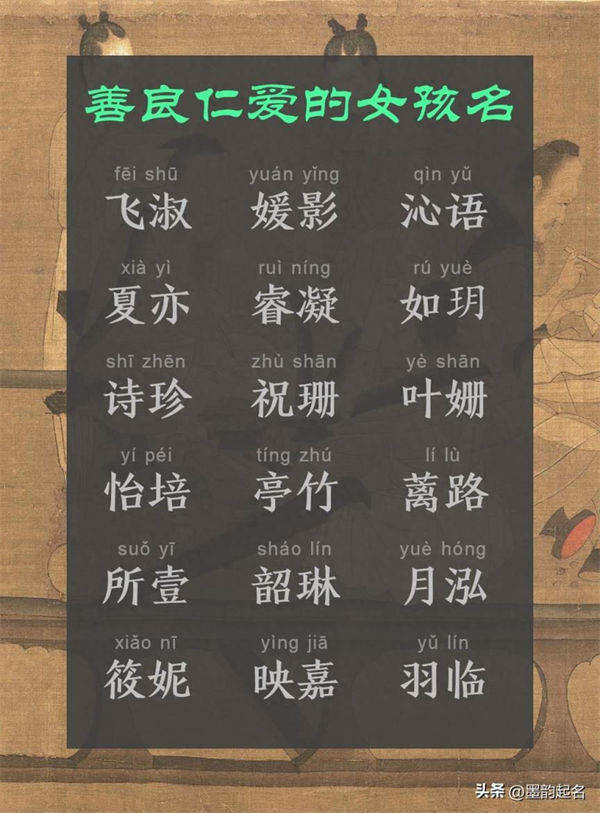 善良仁爱的女孩名
fēi shū yuán yǐng qìn yǔ
飞淑 媛影 沁语
xià yì ruì níng rú yuè
夏亦 睿凝 如玥
shī zhēn zhù shān yè shān
诗珍 祝珊 叶姗
yí péi tíng zhú lí lù
怡培 亭竹 蓠路
suǒ yī sháo lín yuè hóng
所壹 韶琳 月泓
xiǎo nī yìng jiā yǔ lín
筱妮 映嘉 羽临
头条 @墨韵起名